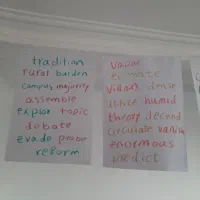 tradition
rural burden
campus majority
assemble
explor topic
debate
evade probe
reform
value
climate
villain dense
humid
theory decend
circulate
enormous
predict